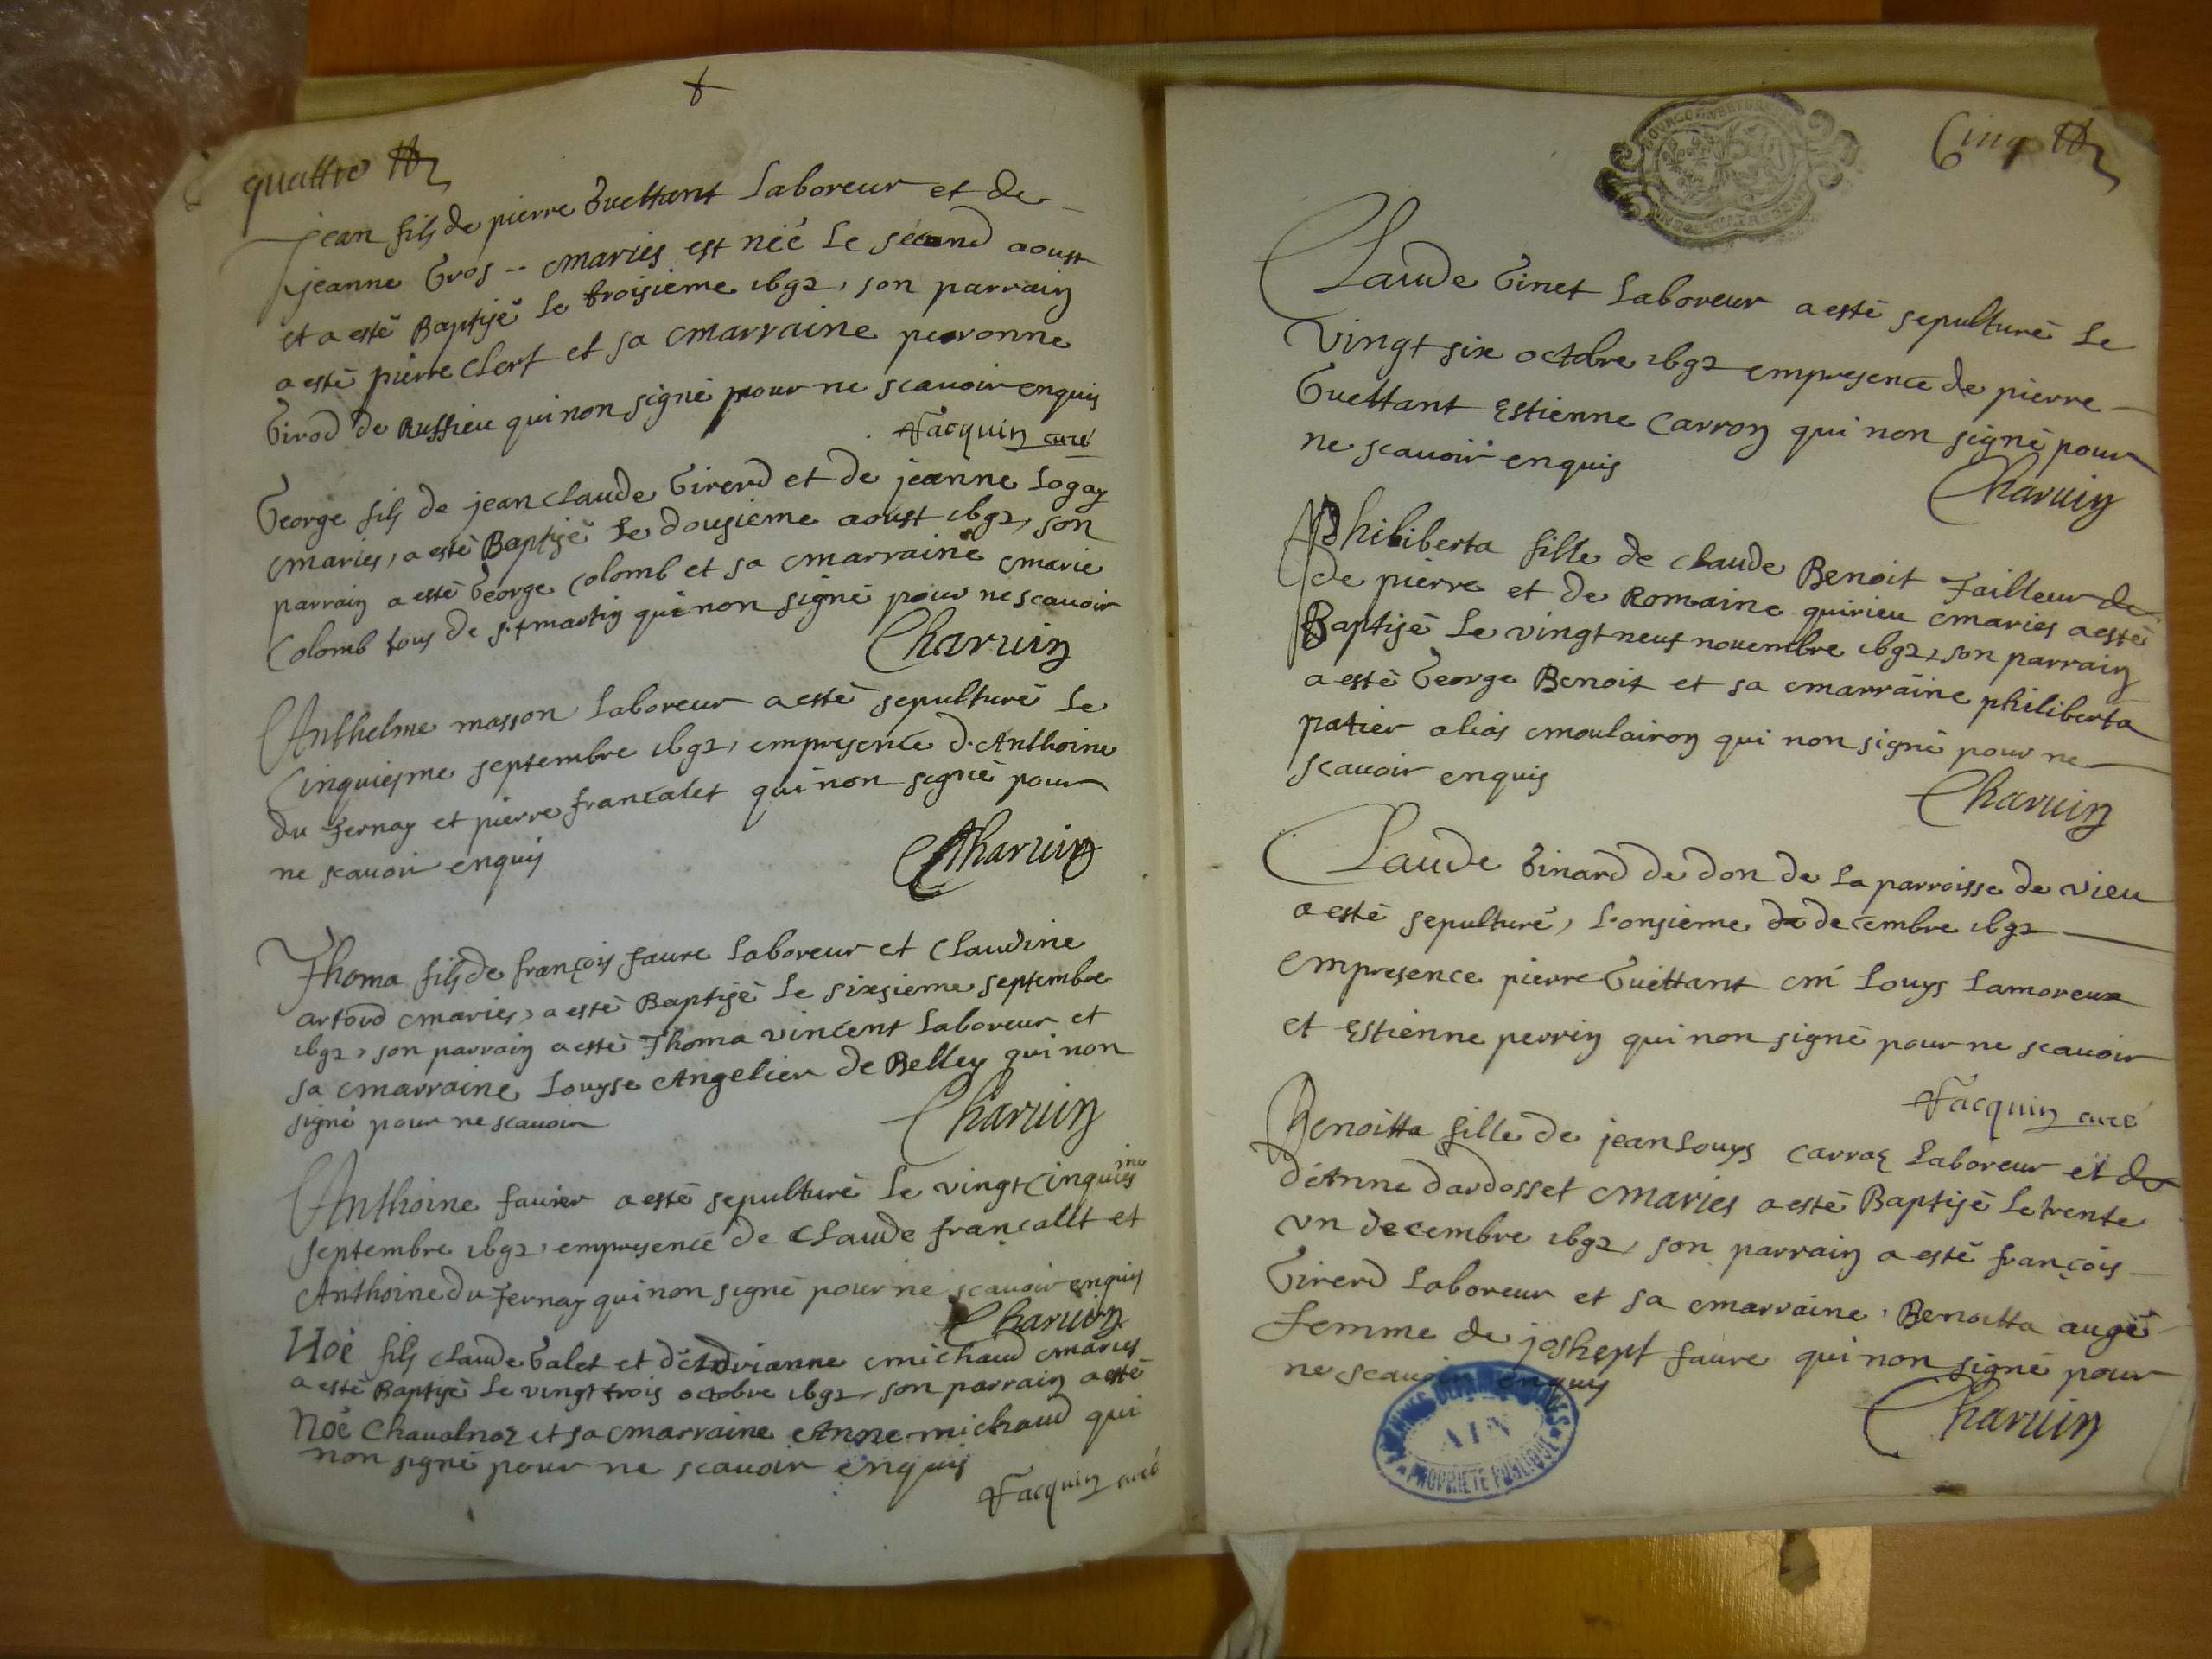 quattre
jean fils de pierre Guettant Laboreur et de
jeanne Gros -- mariés est néé Le second aoust
et a esté Baptisé Le troisieme 1692, son parrain
a esté pierre Clert et sa marraine peronne
Girod de Russieu qui non signé pour ne scauoir enquis
Jacquin curé
George fils de jean claude Girerd et de jeanne Logay
mariés, a esté Baptisé Le dousieme aoust 1692, son
parrain a esté George Colomb et sa marraine marie
Colomb tous de st martin qui non signé pour ne scauoir
Charuin
Anthelme masson Laboreur a esté sepulturé Le
Cinquiesme septembre 1692, empresence d'Anthoine
du Fernay et pierre francalet qui non signé pour
ne scauoir enquis
Charuin
Thoma fils de françois faure Laboreur et Claudine
artoud mariés, a esté Baptisé Le sixsieme septembre
1692, son parrain a esté Thoma vincent Laboreur et
sa marraine Louyse Angelier de Belley qui non
signé pour ne scauoir
Charuin
Anthoine faurer a esté sepulturé Le vingt Cinquies me
septembre 1692, empresence de Claude francallt et
Anthoine du Fernay qui non signé pour ne scauoir enquis
Charuin
Noé fils claude Galet et d'Adrianne michaud mariés
a esté Baptisé Le vingt trois octobre 1692, son parrain a esté
Noé Chaualnoz et sa marraine Anne michaud qui
non signé pour ne scauoir enquis
Jacquin curé
Cinq
Claude Ginet Laboreur a esté sepulturé Le
vingt six octobre 1692 empresence de pierre
Guettant Estienne Carron qui non signé pour
ne scauoir enquis
Charuin
Philiberta fille de claude Benoit Tailleur de
de pierre et de Romaine quirieu mariés a esté
Baptisé Le vingt neuf nouembre 1692, son parrain
a esté George Benoit et sa marraine philiberta
patier alias moulairon qui non signé pour ne
scauoir enquis
Charuin
Claude Ginard de don de La parroisse de vieu
a esté sepulturé, L'onsieme de decembre 1692
empresence pierre Guettant mi Louys Lamoreux
et Estienne perrin qui non signé pour ne scauoir
Jacquin curé
Benoitta fille de jean Louys carraz Laboreur et de
d'Anne dardosset mariés a esté Baptisé Le trente
un decembre 1692, son parrain a esté françois
Girerd Laboreur et sa marraine, Benoitta augé
femme de joshept faure qui non signé pour
ne scauoir enquis
Charuin
AIN
PROPRIETE PUBLIQUE